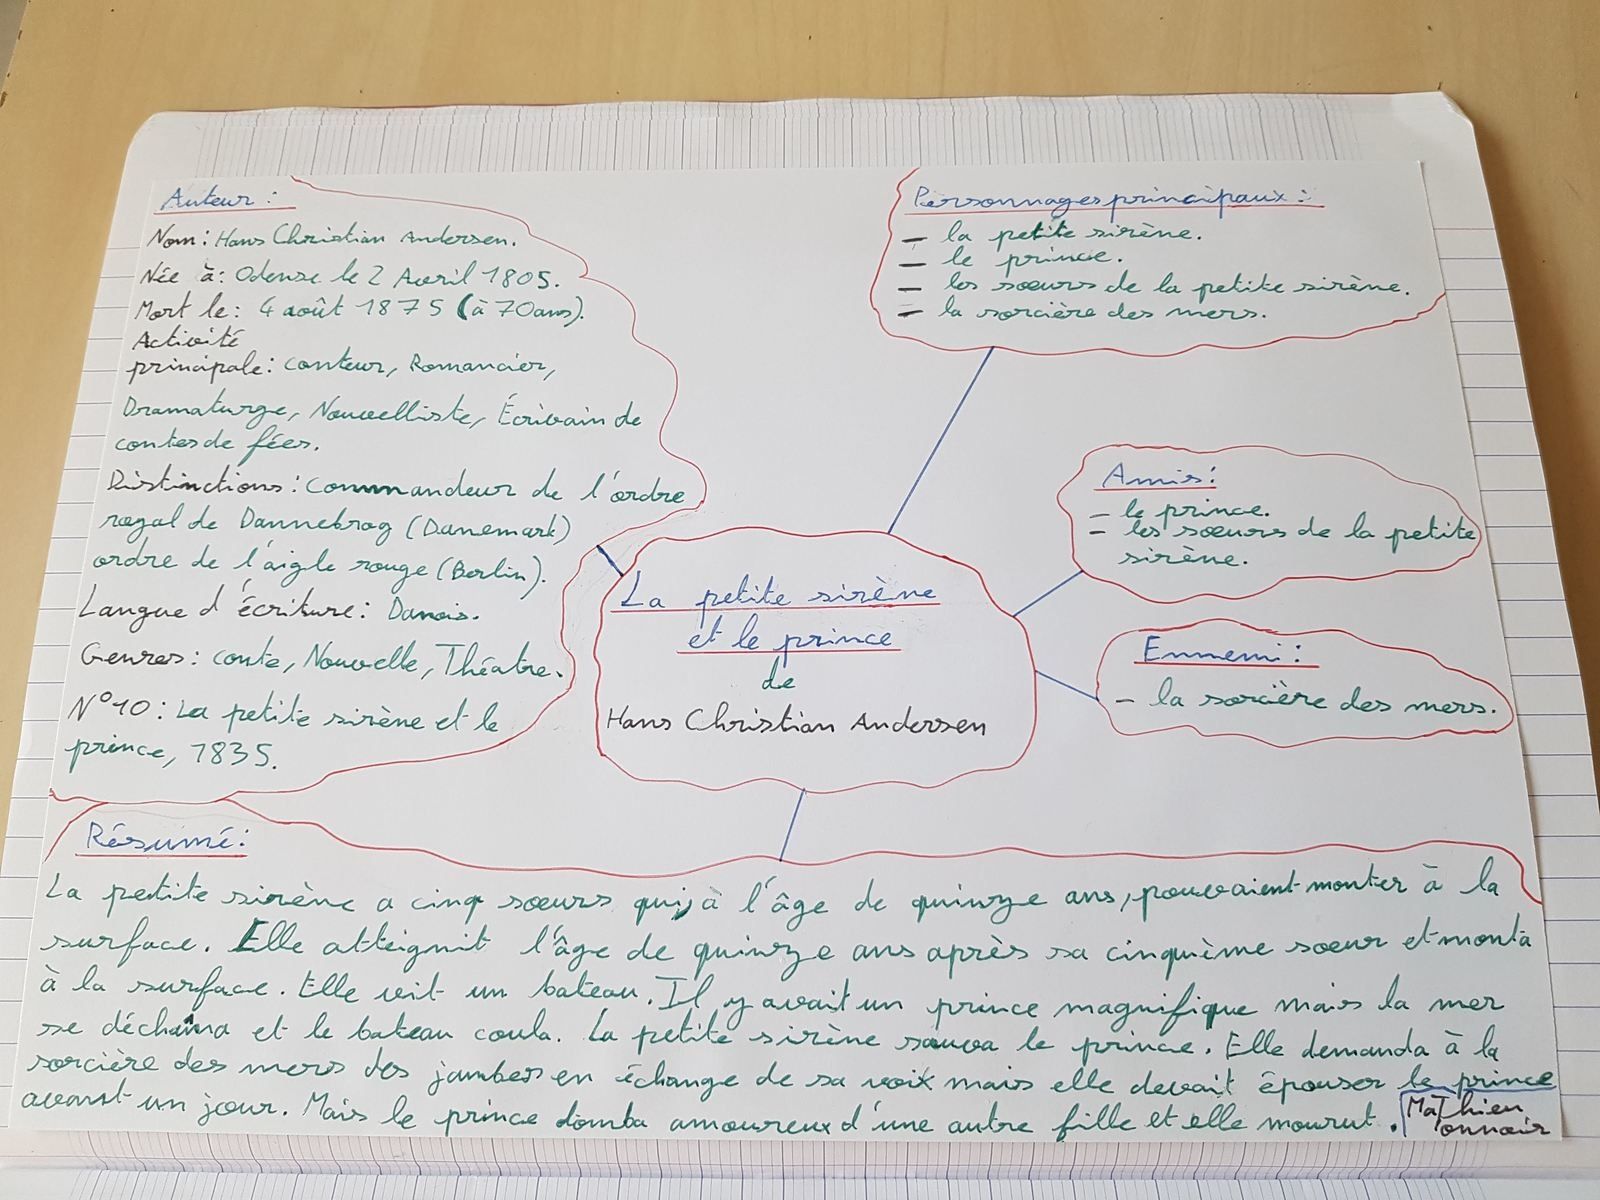 Auteur :
Nom : Hans Christian Andersen.
Née à : Odense le 2 Avril 1805.
Mort le : 4 août 1875 (à 70 ans).
Activité
principale : conteur, Romancier,
Dramaturge, Nouvelliste, Écrivain de
contes de fées.
Distinctions : Commandeur de l'ordre
royal de Dannebrog (Danemark)
ordre de l'aigle rouge (Berlin).
Langue d'écriture : Danois.
Genres : conte, Nouvelle, Théatre.
N°10 : La petite sirène et le
prince, 1835.
Personnages principaux :
- la petite sirène.
- le prince.
- les sœurs de la petite sirène.
- la sorcière des mers.
Amis :
- le prince.
- les sœurs de la petite
sirène.
Ennemi :
- la sorcière des mers.
La petite sirène
et le prince
de
Hans Christian Andersen
Résumé :
La petite sirène a cinq sœurs qui, à l'âge de quinze ans, pouvaient monter à la
surface. Elle atteignit l'âge de quinze ans après sa cinquième sœur et monta
à la surface. Elle vit un bateau. Il y avait un prince magnifique mais la mer
se déchaîna et le bateau coula. La petite sirène sauva le prince. Elle demanda à la
sorcière des mers des jambes en échange de sa voix mais elle devait épouser le prince
avant un jour. Mais le prince tomba amoureux d'une autre fille et elle mourut.
Mathieu